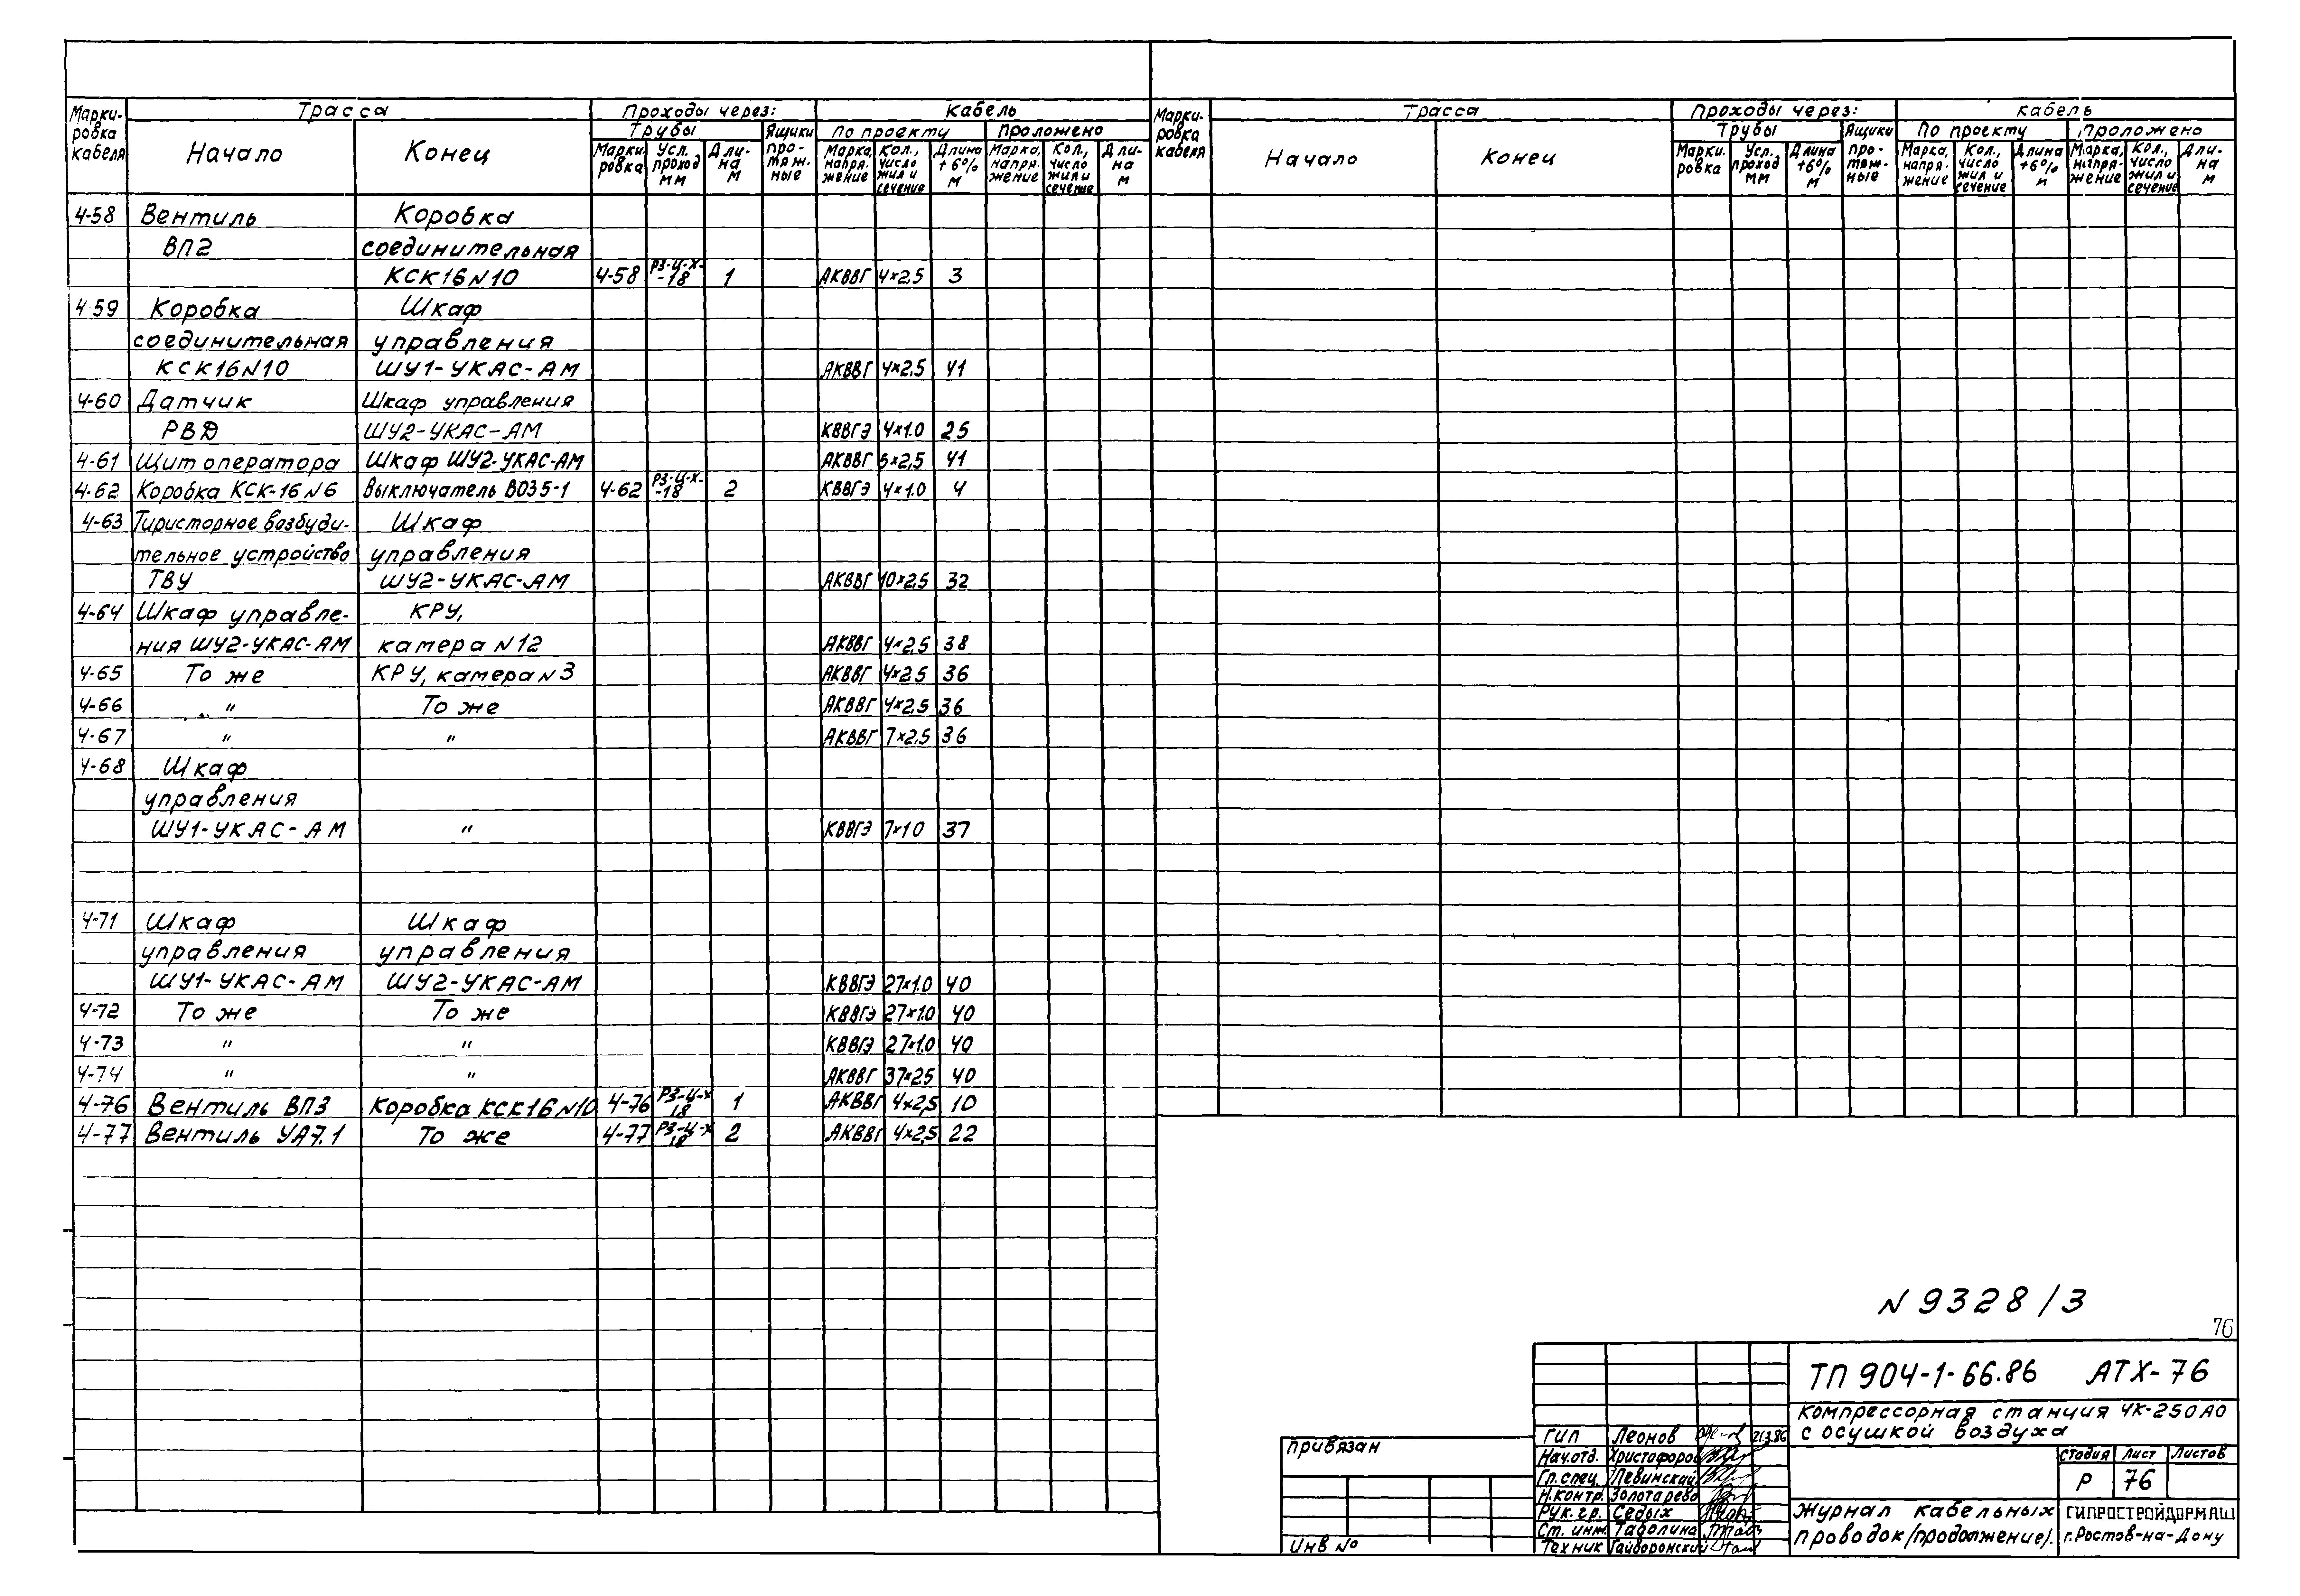 Маркировка кабеля | Трасса | Проходы через: | Кабель
Начало | Конец | Трубы | Ящики протяжные | По проекту | Проложено
Маркировка | Усл. проход мм | Длина м | Марка, напряжение | Кол., число жил и сечение | Длина +6% м | Марка, напряжение | Кол., число жил и сечение | Длина м
4-58 Вентиль Коробка
ВП2 соединительная
КСК16N10 4-58 РЗ-Ц-Х--18 1 АКВВГ 4×2,5 3
4 59 Коробка Шкаф
соединительная управления
КСК16N10 ШУ1-УКАС-АМ АКВВГ 4×2,5 41
4-60 Датчик Шкаф управления
РВД ШУ2-УКАС-АМ КВВГЭ 4×1.0 25
4-61 Щит оператора Шкаф ШУ2-УКАС-АМ АКВВГ 5×2,5 41
4-62 Коробка КСК-16N6 Выключатель В035-1 4-62 РЗ-Ц-Х--18 2 КВВГЭ 4×1.0 4
4-63 Тиристорное возбуди- Шкаф
тельное устройство управления
ТВУ ШУ2-УКАС-АМ АКВВГ 10×2,5 32
4-64 Шкаф управле- КРУ,
ния ШУ2-УКАС-АМ камера N12 АКВВГ 4×2,5 38
4-65 То же КРУ, камера N3 АКВВГ 4×2.5 36
4-66 " То же АКВВГ 4×2,5 36
4-67 " " АКВВГ 7×2,5 36
4-68 Шкаф
управления
ШУ1-УКАС-АМ " КВВГЭ 7×1.0 37
4-71 Шкаф Шкаф
управления управления
ШУ1-УКАС-АМ ШУ2-УКАС-АМ КВВГЭ 27×1.0 40
4-72 То же То же КВВГЭ 27×1.0 40
4-73 " " КВВГЭ 27×1.0 40
4-74 " " АКВВГ 37×2.5 40
4-76 Вентиль ВП3 Коробка КСК16N10 4-76 РЗ-Ц-Х 18 1 АКВВГ 4×2,5 10
4-77 Вентиль УА7.1 То же 4-77 РЗ-Ц-Х 18 2 АКВВГ 4×2,5 22
Маркировка кабеля | Трасса | Проходы через: | Кабель
Начало | Конец | Трубы | Ящики протяжные | По проекту | Проложено
Маркировка | Усл. проход мм | Длина +6% м | Марка, напряжение | Кол., число жил и сечение | Длина +6% м | Марка, напряжение | Кол., число жил и сечение | Длина м
N 9328/3
76
ТП 904-1-66.86 АТХ-76
Компрессорная станция 4К-250А0
с осушкой воздуха
Стадия Лист Листов
Р 76
Журнал кабельных
проводок (продолжение).
ГИПРОСТРОЙДОРМАШ
г.Ростов-на-Дону
ГИП Леонов 21.3.86
Нач.отд. Христофоров
Гл.спец. Левинский
Н.контр. Золотарева
Рук.гр. Седых
Ст. инж. Таболина
Техник Гайворонский
Привязан
Инв №